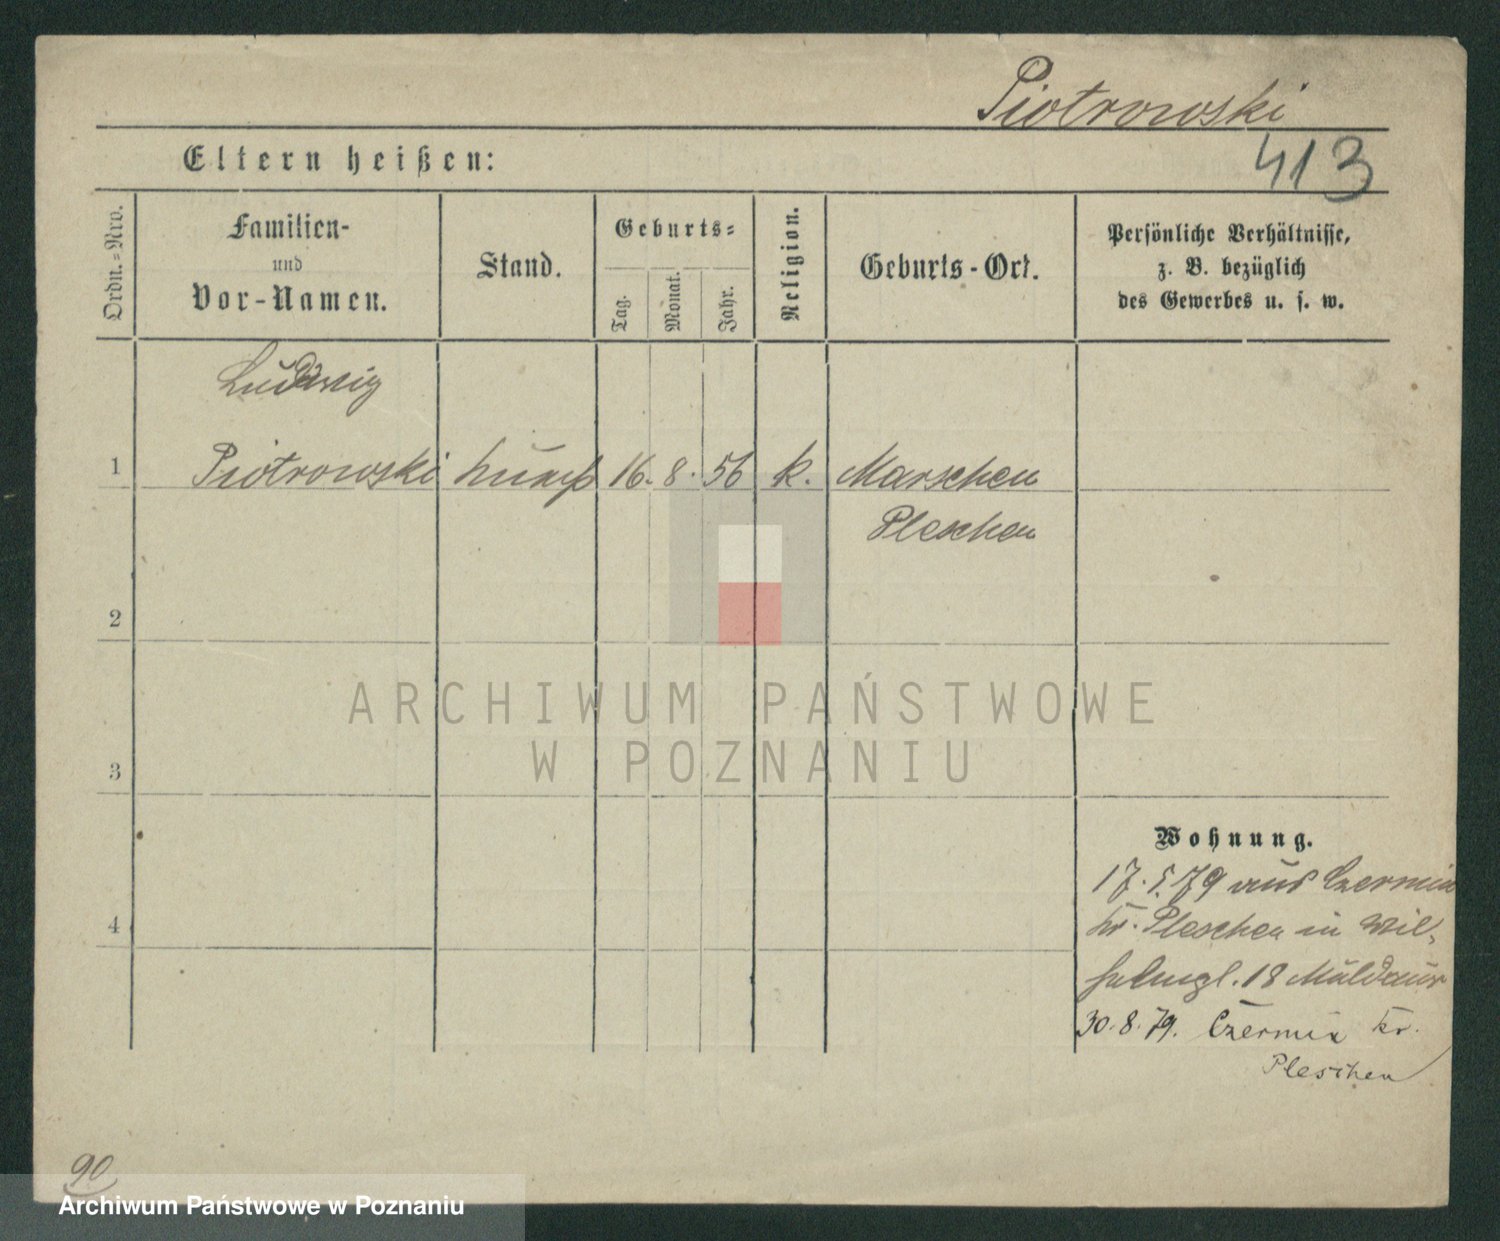 Piotrowski
413
Eltern heißen:
Ordn.-Nro.
Familien-
und
Vor-Namen.
Stand.
Geburts-
Tag.
Monat.
Jahr.
Religion.
Geburts-Ort.
Persönliche Verhältnisse,
z. B. bezüglich
des Gewerbes u. s. w.
Ludwig
1 Piotrowski 16. 8. 56 k. Marschen
Pleschen
2
3
4
ARCHIWUM PAŃSTWOWE
W POZNANIU
Wohnung.
17. 5. 79 aus Czermin
Kr. Pleschen in Wil-
18
30. 8. 79. Czermin Kr.
Pleschen
90
Archiwum Państwowe w Poznaniu